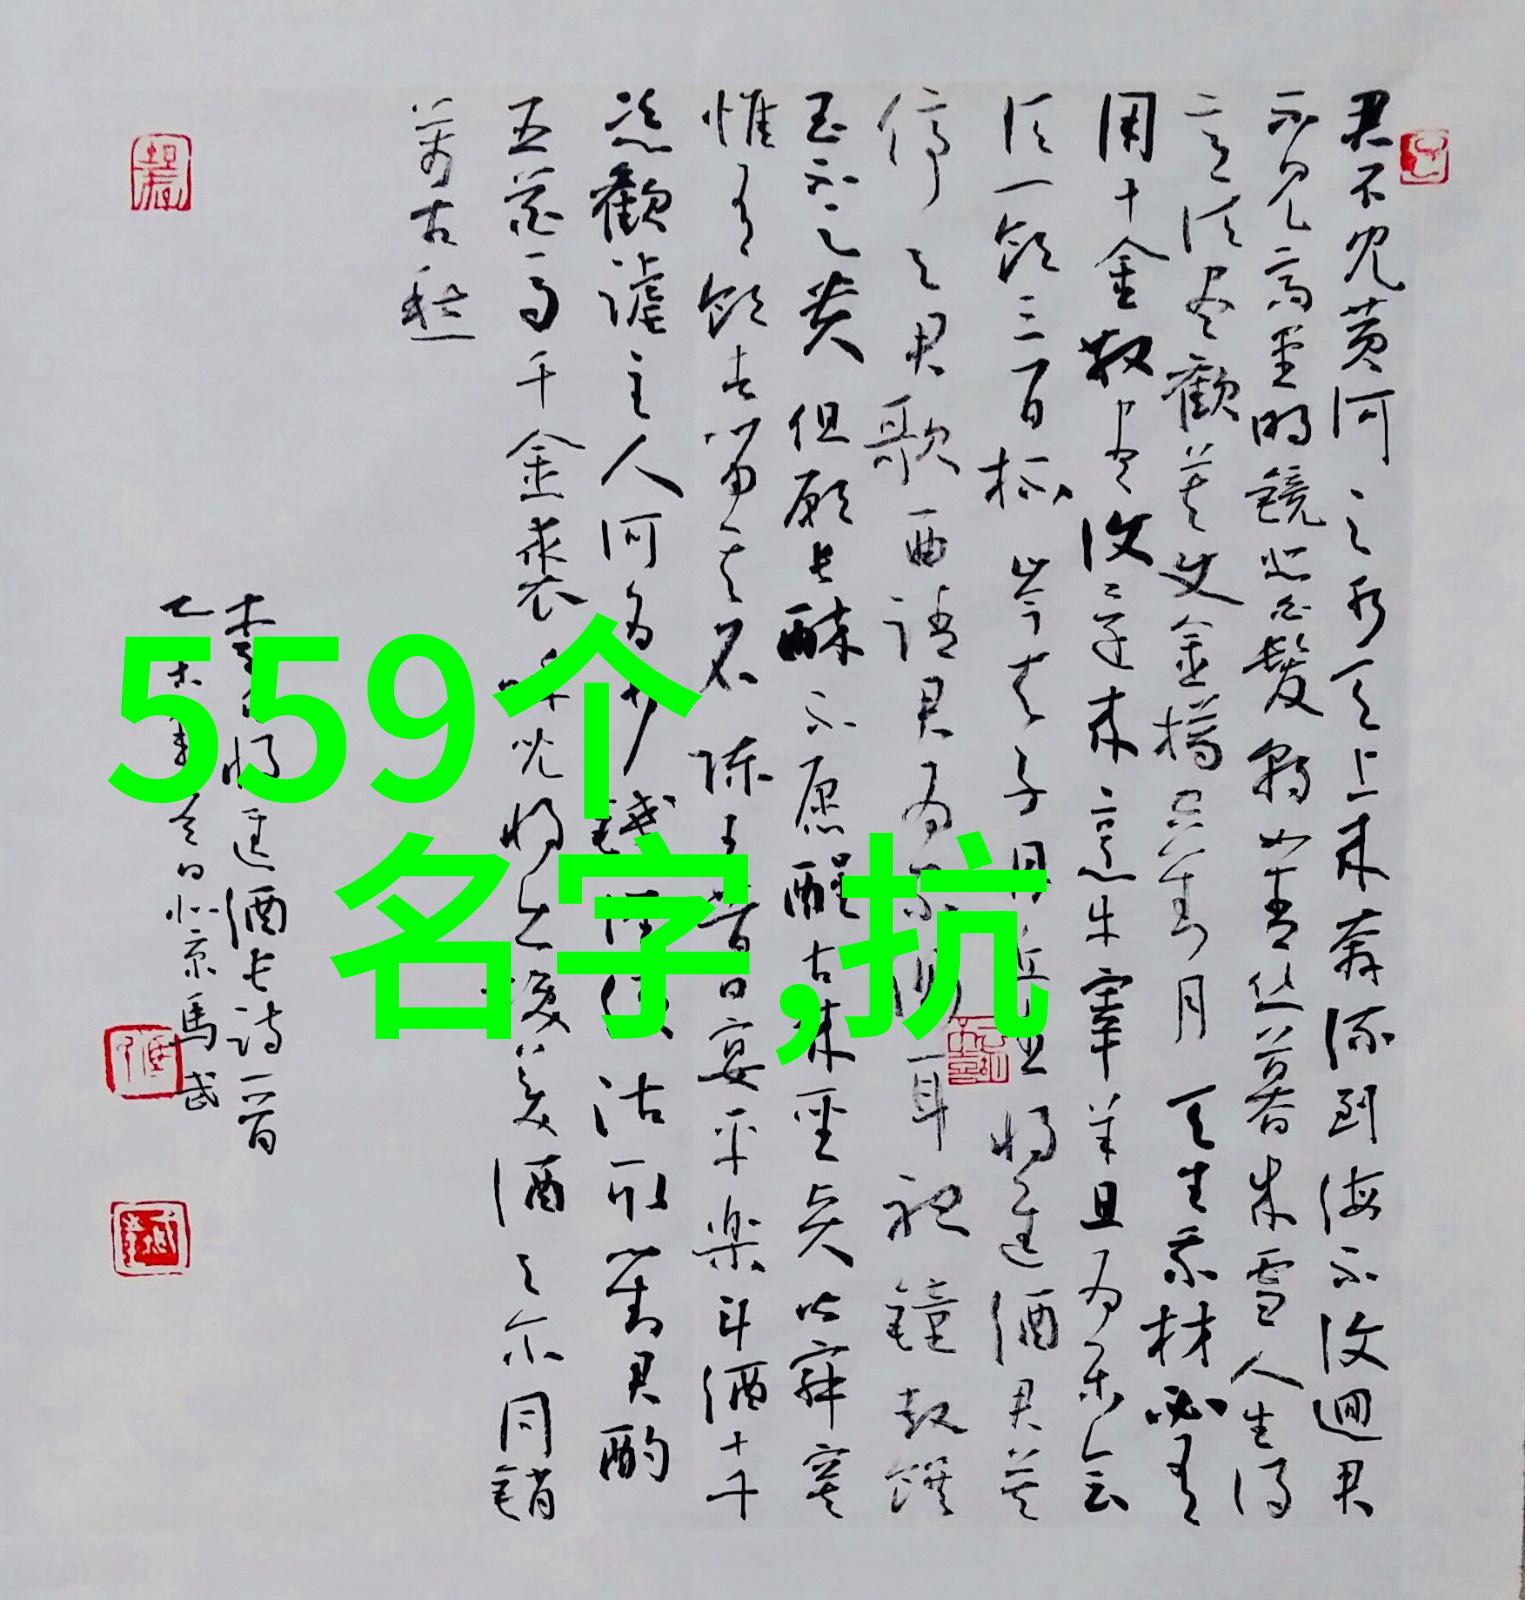 559个
名字,抗
君不见黄河之水天上来奔流到海不復迴君
不见高堂明镜悲白髮朝如青丝暮成雪人生得
意须尽歡莫使金樽空对月天生我材必有
用千金散尽復还来烹牛宰羊且为乐会
须一饮三百杯岑夫子丹丘生将进酒君莫
停与君歌一曲请君为我倾耳聽鐘鼓馔
玉不足贵但願长醉不愿醒古来圣贤皆寂寞
惟有饮者留其名陈王昔日宴平乐斗酒十千
恣歡谑主人何为少钱径须沽取对君酌
五花马千金裘呼兒将出换美酒与尔同销
萬古愁
李白将进酒长诗一首
乙未年 北京馬武